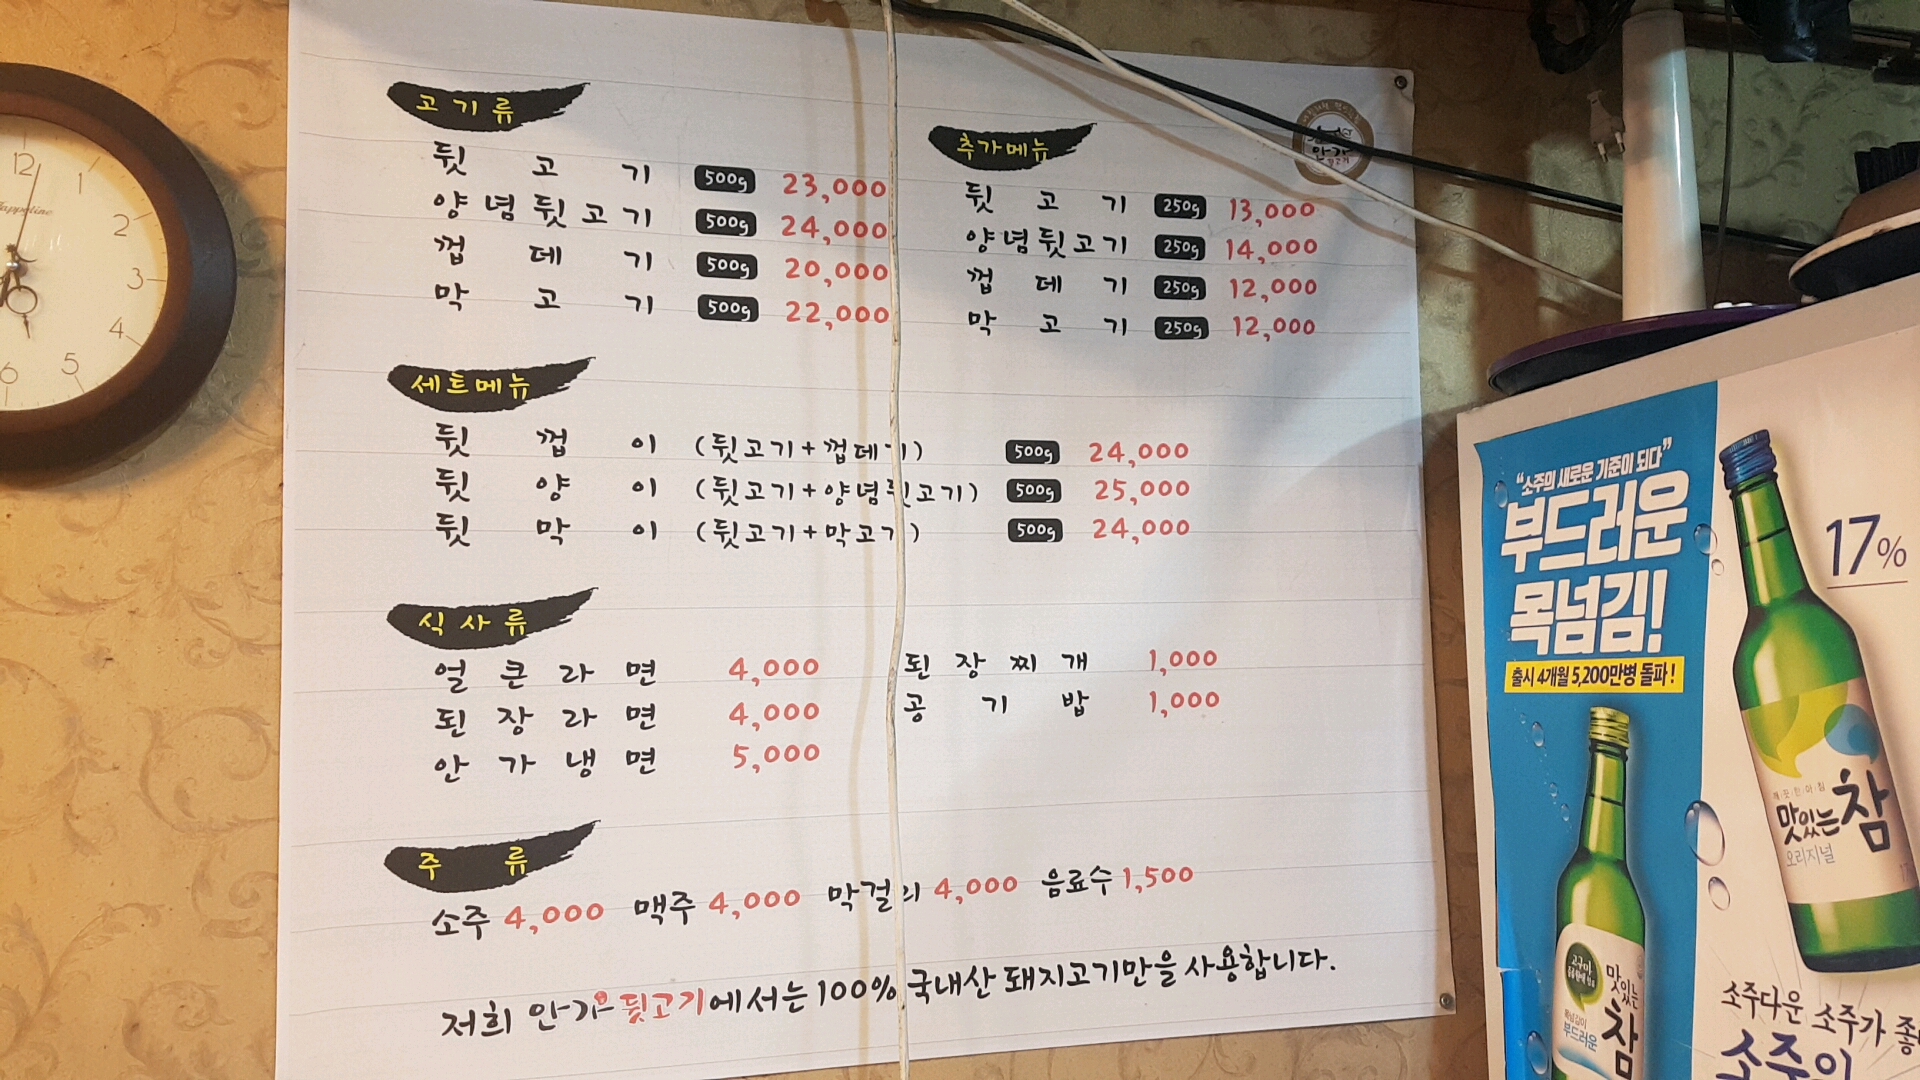 고기류
뒷고기 500g 23,000
양념뒷고기 500g 24,000
껍데기 500g 20,000
막고기 500g 22,000
추가메뉴
뒷고기 250g 13,000
양념뒷고기 250g 14,000
껍데기 250g 12,000
막고기 250g 12,000
세트메뉴
뒷껍이 (뒷고기+껍데기) 500g 24,000
뒷양이 (뒷고기+양념뒷고기) 500g 25,000
뒷막이 (뒷고기+막고기) 500g 24,000
식사류
얼큰라면 4,000
된장라면 4,000
안가냉면 5,000
된장찌개 1,000
공기밥 1,000
주류
소주 4,000 맥주 4,000 막걸리 4,000 음료수 1,500
저희 안가뒷고기에서는 100% 국내산 돼지고기만을 사용합니다.
12
1
2
3
4
5
6
"소주의 새로운 기준이 되다"
부드러운
목넘김!
출시 4개월 5,200만병 돌파!
17%
깨끗한아침
맛있는참
오리지널
맛있는
참
부드러운
소주다운 소주가
소주의